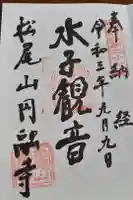 奉納経
令和三年元月九日
水子観音
松尾山円融寺